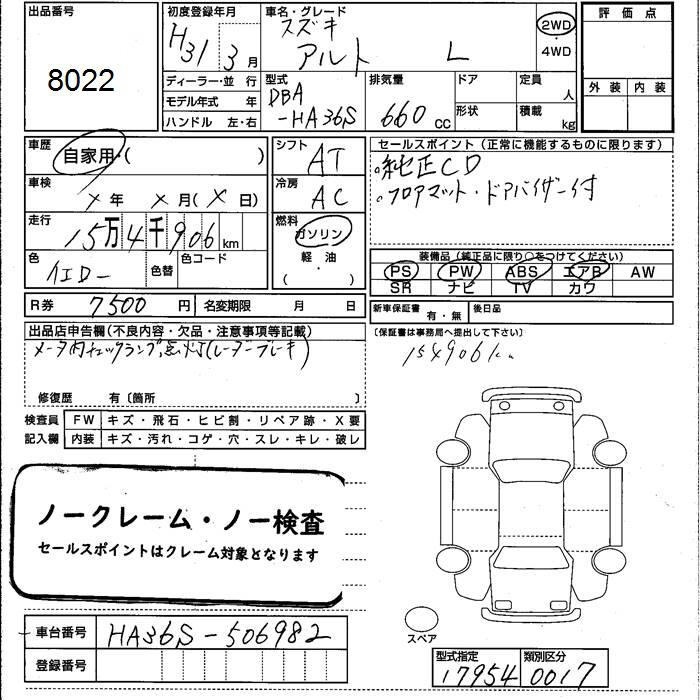 出品番号
8022
初度登録年月
H31 3 月
車名・グレード
スズキ
アルト L
2WD
・
4WD
評価点
外装 内装
ディーラー・並 行
モデル年式 年
ハンドル 左・右
型式
DBA
-HA36S
排気量
660 CC
ドア
形状
定員
人
積載
kg
車歴
自家用・( )
車検
× 年 × 月(× 日)
走行
15万4千906 km
色
イエロー
色替
色コード
シフト
AT
冷房
AC
燃料
ガソリン
軽油
( )
セールスポイント(正常に機能するものに限ります)
。純正CD
。フロアマット・ドアバイザー付
装備品(純正品に限り○をつけてください)
PS PW ABS エアB AW
SR ナビ TV カワ
R券 7500 円
名変期限 月 日
新車保証書 有・無
後日品
〔保証書は事務局へ提出して下さい〕
154906km
出品店申告欄(不良内容・欠品・注意事項等記載)
メータ内チェックランプ点灯(レーダーブレーキ)
修復歴 有〔箇所 〕
検査員
記入欄
FW キズ・飛石・ヒビ割・リペア跡・X要
内装 キズ・汚れ・コゲ・穴・スレ・キレ・破レ
ノークレーム・ノー検査
セールスポイントはクレーム対象となります
車台番号 HA36S-506982
登録番号
スペア
型式指定
17954
類別区分
0017